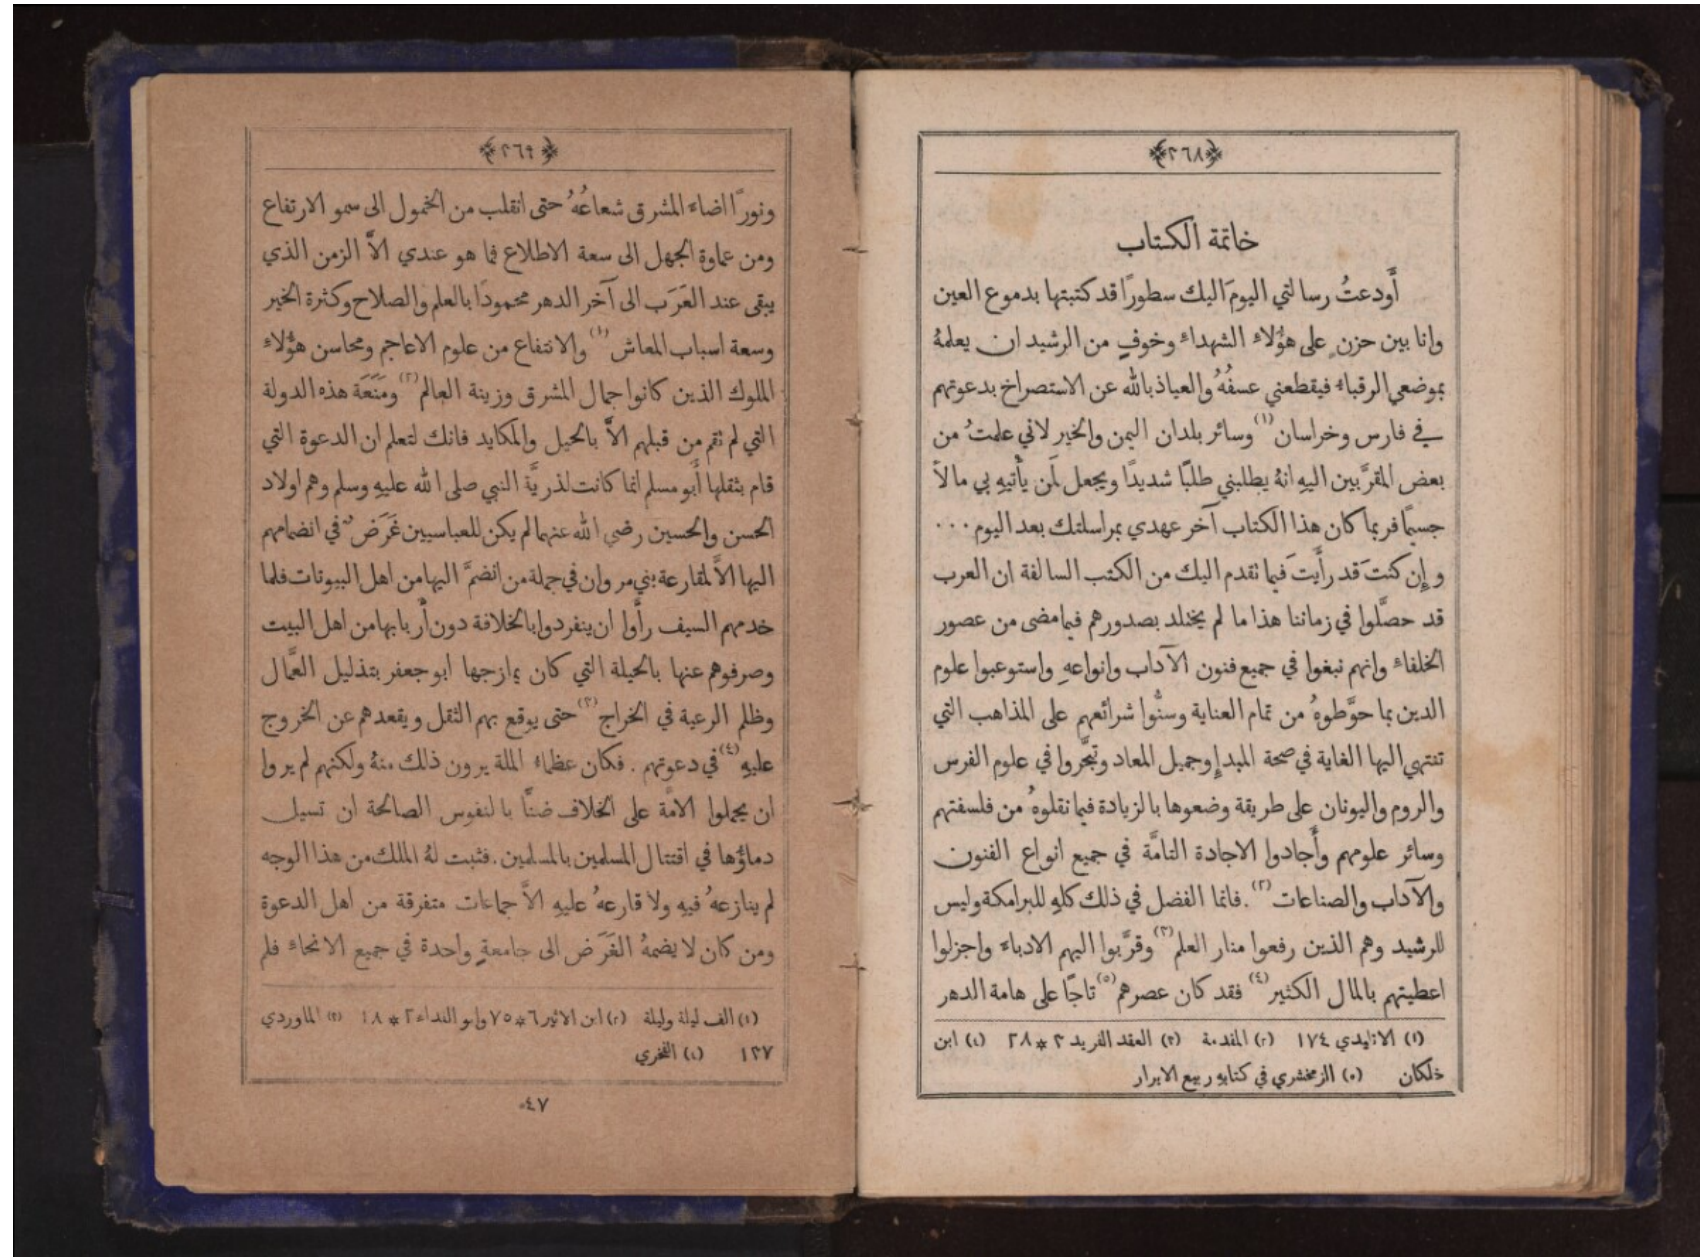 ﴿٢٦٨﴾
خاتمة الكتاب
أَودعتُ رسالتي اليومَ اليك سطورًا قد كتبتها بدموع العين
وانا بين حزنٍ على هؤُلاءِ الشهداءِ وخوفٍ من الرشيد ان يعلمهُ
بموضعي الرقباءُ فيقطعني عسفُهُ والعياذ بالله عن الاستصراخ بدعوتهم
في فارس وخراسان (١) وسائر بلدان اليمن والخير لاني علمتُ من
بعض المقرَّبين اليهِ انهُ يطلبني طلبًا شديدًا ويجعل لَمن يأْتيهِ بي مالاً
جسيمًا فربما كان هذا الكتاب آخر عهدي بمراسلتك بعد اليوم ٠٠٠
وإِن كنتَ قد رأَيتَ فيما تقدم اليك من الكتب السالفة ان العرب
قد حصَّلوا في زماننا هذا ما لم يختلد بصدورهم فيما مضى من عصور
الخلفاءِ وانهم نبغوا في جميع فنون الآداب وانواعهِ واستوعبوا علوم
الدين بما حوَّطوهُ من تمام العناية وسنُّوا شرائعهم على المذاهب التي
تنتهي اليها الغاية في صحة المبدإِ وجميل المعاد وتبحَّروا في علوم الفرس
والروم واليونان على طريقة وضعوها بالزيادة فيما نقلوهُ من فلسفتهم
وسائر علومهم وأَجادوا الاجادة التامَّة في جميع انواع الفنون
والآداب والصناعات (٢) . فانما الفضل في ذلك كلهِ للبرامكة وليس
للرشيد وهم الذين رفعوا منار العلم (٣) وقرَّبوا اليهم الادباءَ واجزلوا
اعطيتهم بالمال الكثير (٤) فقد كان عصرهم (٥) تاجًا على هامة الدهر
(١) الاتليدي ١٧٤ (٢) المقدمة (٣) العقد الفريد ٢ * ٢٨ (٤) ابن
خلكان (٥) الزمخشري في كتابهِ ربيع الابرار
﴿٢٦٩﴾
ونورًا اضاءَ المشرق شعاعُهُ حتى انقلب من الخمول الى سمو الارتفاع
ومن عماوة الجهل الى سعة الاطلاع فما هو عندي الاَّ الزمن الذي
يبقى عند العَرَب الى آخر الدهر محمودًا بالعلم والصلاح وكثرة الخير
وسعة اسباب المعاش (١) والانتفاع من علوم الاعاجم ومحاسن هؤُلاءِ
الملوك الذين كانوا جمال المشرق وزينة العالم (٢) ومَنَعَة هذه الدولة
التي لم تقم من قبلهم الاَّ بالحيل والمكايد فانك لتعلم ان الدعوة التي
قام بثقلها أَبو مسلم انما كانت لذريَّة النبي صلى الله عليهِ وسلم وهم اولاد
الحسن والحسين رضي الله عنهما لم يكن للعباسيين غَرَضٌ في انضمامهم
اليها الاَّ لمقارعة بني مروان في جملة من انضمَّ اليها من اهل البيوتات فلما
خدمهم السيف رأَوا ان ينفردوا بالخلافة دون أَربابها من اهل البيت
وصرفوهم عنها بالحيلة التي كان يمازجها ابو جعفر بتذليل العمَّال
وظلم الرعية في الخراج (٣) حتى يوقع بهم الثقل ويقعدهم عن الخروج
عليهِ (٤) في دعوتهم . فكان عظماءُ الملة يرون ذلك منهُ ولكنهم لم يروا
ان يحملوا الامَّة على الخلاف ضنًّا بالنفوس الصالحة ان تسيل
دماؤُها في اقتتال المسلمين بالمسلمين . فثبت لهُ الملك من هذا الوجه
لم ينازعهُ فيهِ ولا قارعهُ عليهِ الاَّ جماعات متفرقة من اهل الدعوة
ومن كان لا يضمهُ الغَرَض الى جامعةٍ واحدة في جميع الانحاءِ فلم
(١) الف ليلة وليلة (٢) ابن الاثير ٦ * ٧٥ وابو الفداء ٢ * ١٨ (٣) الماوردي
١٣٧ (٤) الفخري
٤٧